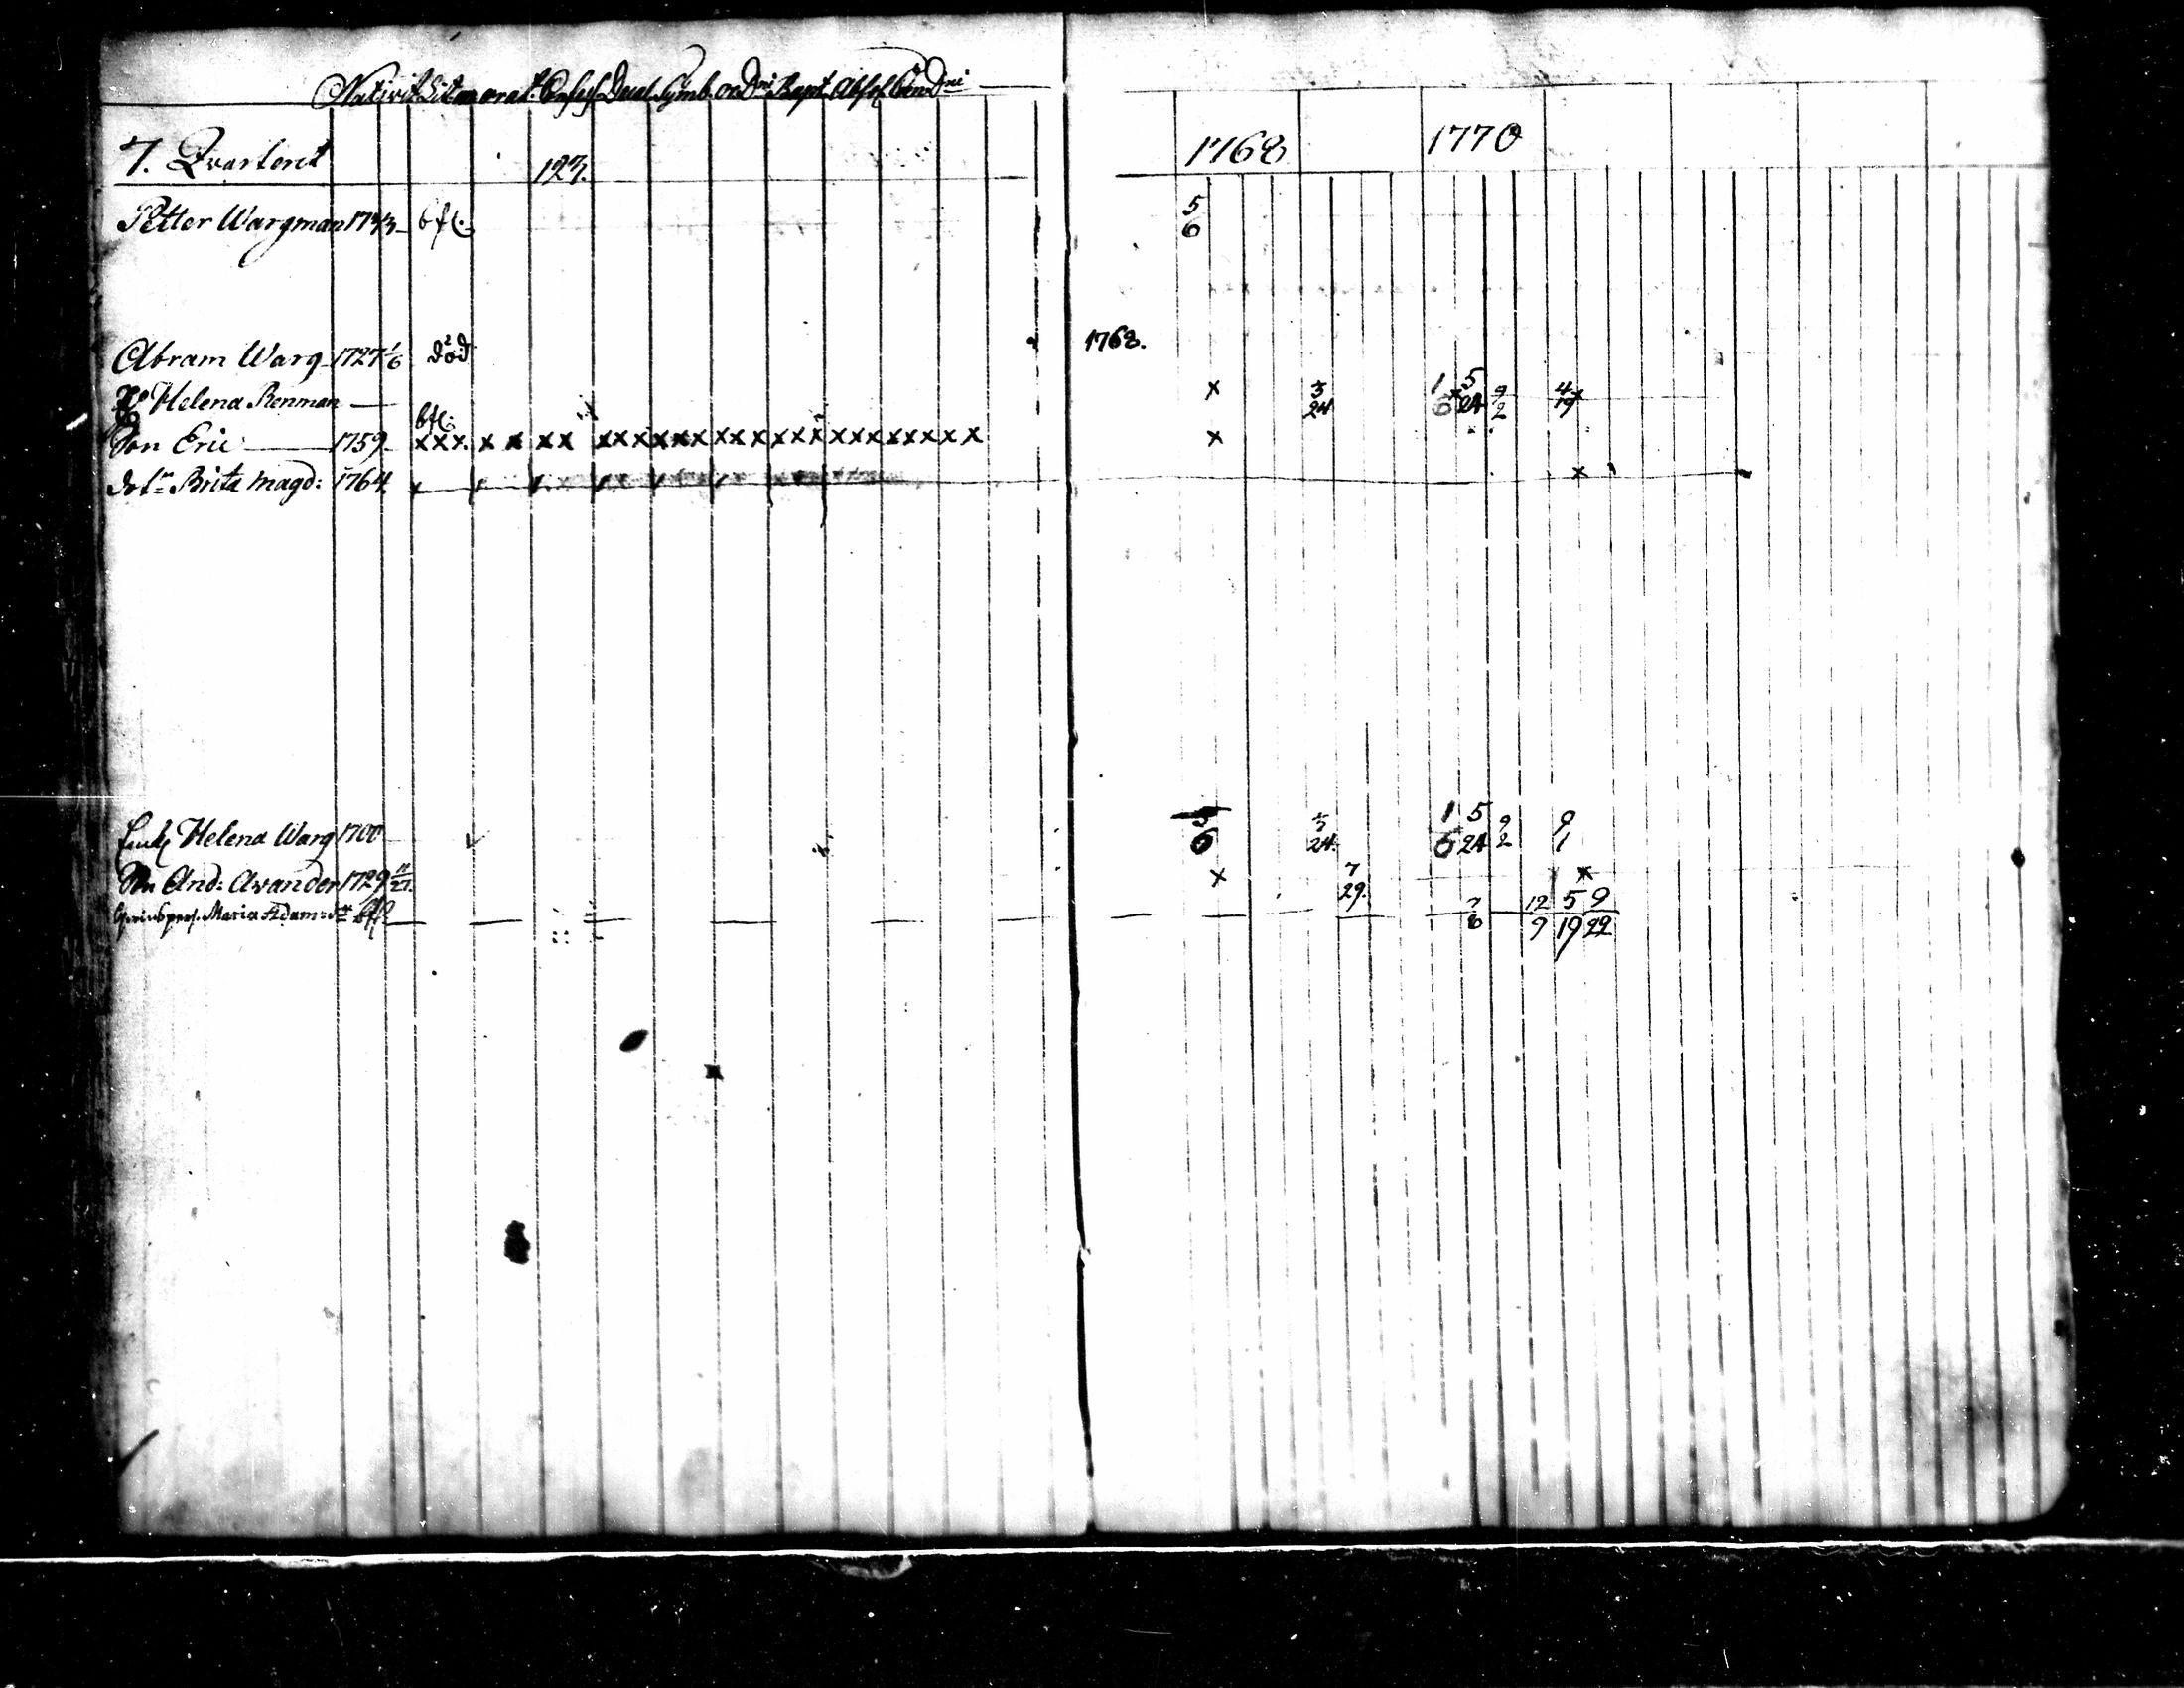 Nativit Litm orat. Confess Decal. Symb. or Dni Bapt. Absol. Cœn Dni
7. Qvarteret 123. 1768 1770
Petter Wargman 1743 bfl. 5
6
Abram Warg 1727 1/6 död 1768.
Helena Renman x 5/24 1/6 5/24 9/2 4/19
bfl.
Son Eric 1759 xxx. x x xx xxxxxxxxxxxxxxxxxxxx x
dotr Brita Magd: 1764 x
Enk Helena Warg 1700 5/6 5/24 1/6 5/24 9/2 9/1
Son And: Avander 1729 11/27. x 7/29. x
Maria Adamsdtr bfl 7/8 12/9 5/19 9/22